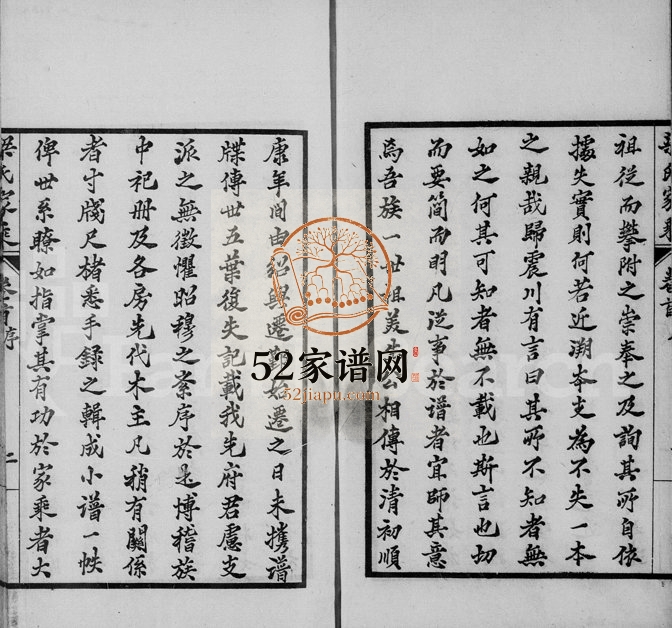 祖從而攀附之崇奉之及詢其所自依
據失實則何若近溯本支為不失一本
之親哉歸震川有言曰其所不知者無
如之何其可知者無不載也斯言也切
而要簡而明凡從事於譜者宜師其意
焉吾族一世祖美先公相傳於清初順
康年間由紹興遷始遷之日未攜譜
牒傳世五葉復失記載我先府君慮支
派之無徵懼昭穆之紊序於是博稽族
中祀冊及各房先代木主凡稍有關係
者寸牋尺楮悉手錄之輯成小譜一帙
俾世系瞭如指掌其有功於家乘者大
吳氏家乘 卷首 序 二
52家谱网
52jiapu.com